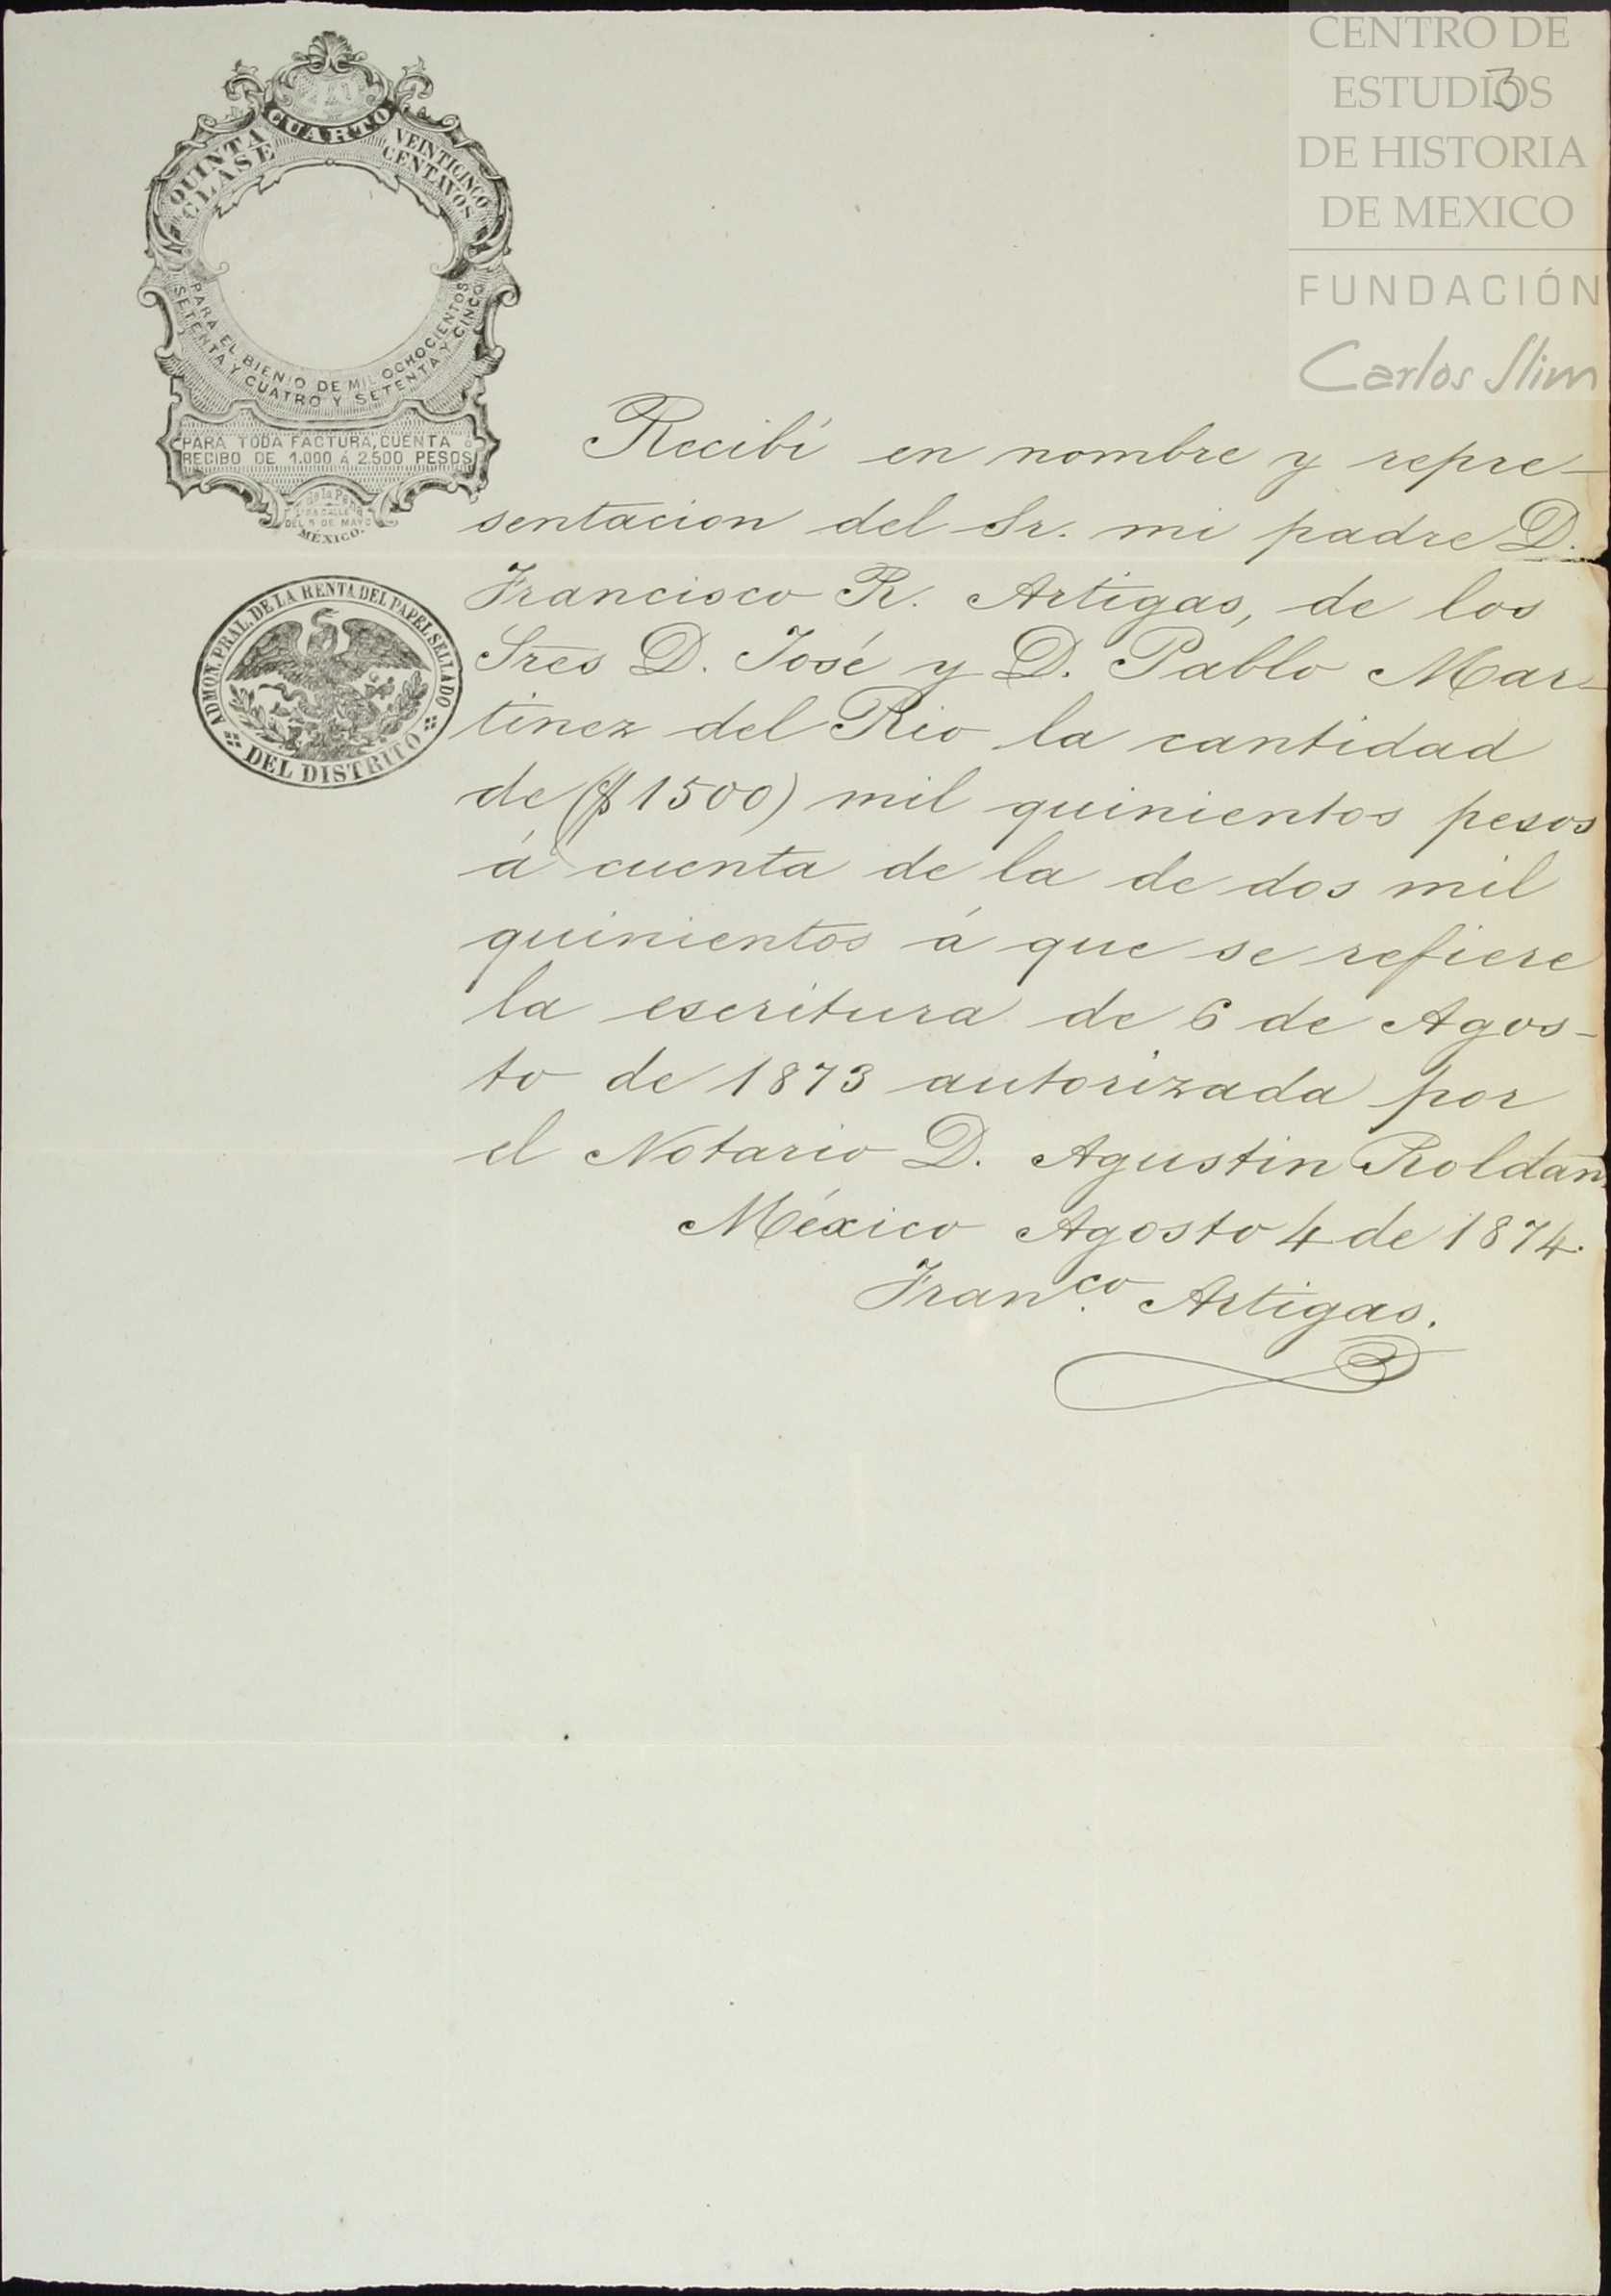 CUARTO
QUINTA CLASE
VEINTICINCO CENTAVOS
PARA EL BIENIO DE MIL OCHOCIENTOS
SETENTA Y CUATRO Y SETENTA Y CINCO
PARA TODA FACTURA, CUENTA ó
RECIBO DE 1.000 Á 2.500 PESOS
de la Peña
CALLE
DEL 5 DE MAYO
MÉXICO.
ADMON. PRAL. DE LA RENTA DEL PAPEL SELLADO
DEL DISTRITO
CENTRO DE
ESTUDIOS
3
DE HISTORIA
DE MEXICO
FUNDACIÓN
Carlos Slim
Recibí en nombre y repre-
sentacion del Sr. mi padre D.
Francisco R. Artigas, de los
Sres D. José y D. Pablo Mar-
tinez del Rio la cantidad
de ($1500) mil quinientos pesos
á cuenta de la de dos mil
quinientos á que se refiere
la escritura de 6 de Agos-
to de 1873 autorizada por
el Notario D. Agustin Roldan
México Agosto 4 de 1874.
Fran.co Artigas.